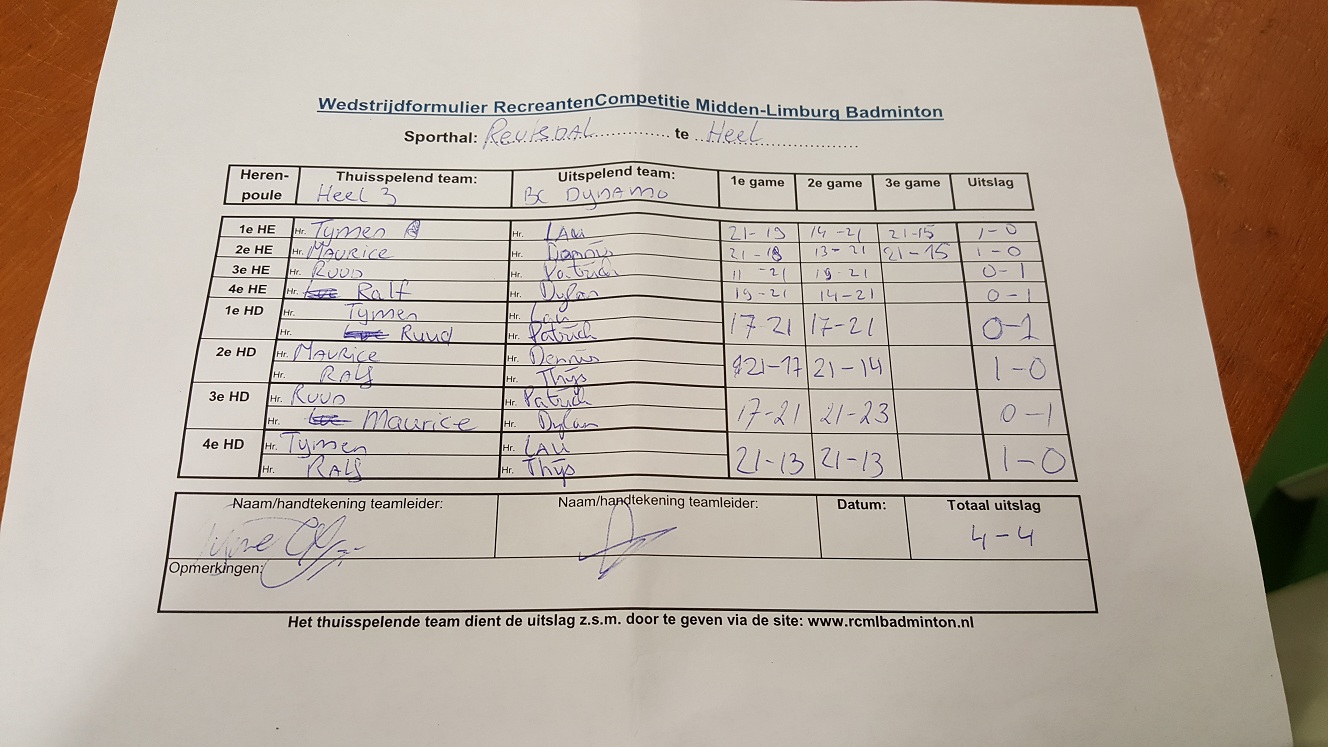 Wedstrijdformulier RecreantenCompetitie Midden-Limburg Badminton
Sporthal: Reutsdal te Heel
Heren-poule Thuisspelend team: Heel 3 Uitspelend team: BC Dynamo 1e game 2e game 3e game Uitslag
1e HE Hr. Tymen Hr. Lau 21-19 14-21 21-15 1-0
2e HE Hr. Maurice Hr. Dennis 21-18 13-21 21-15 1-0
3e HE Hr. Ruud Hr. Patrick 11-21 19-21 0-1
4e HE Hr. Ralf Hr. Dylan 19-21 14-21 0-1
1e HD Hr. Tymen Hr. Lau 17-21 17-21 0-1
Hr. Ruud Hr. Patrick
2e HD Hr. Maurice Hr. Dennis 21-17 21-14 1-0
Hr. Ralf Hr. Thys
3e HD Hr. Ruud Hr. Patrick 17-21 21-23 0-1
Hr. Maurice Hr. Dylan
4e HD Hr. Tymen Hr. Lau 21-13 21-13 1-0
Hr. Ralf Hr. Thys
Naam/handtekening teamleider: Naam/handtekening teamleider: Datum: Totaal uitslag
4-4
Opmerkingen:
Het thuisspelende team dient de uitslag z.s.m. door te geven via de site: www.rcmlbadminton.nl